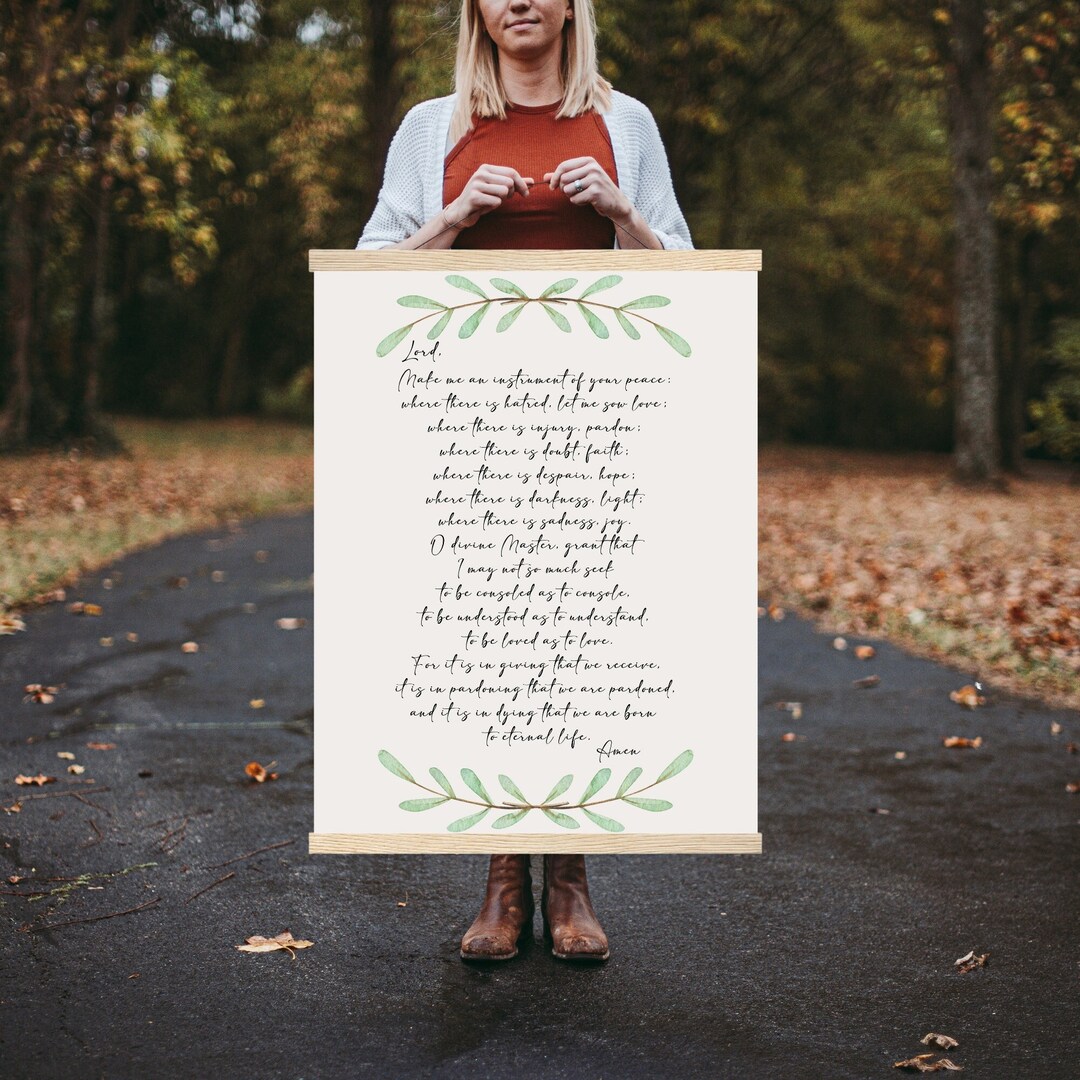 Lord,
Make me an instrument of your peace:
where there is hatred, let me sow love;
where there is injury, pardon;
where there is doubt, faith;
where there is despair, hope;
where there is darkness, light;
where there is sadness, joy.
O divine Master, grant that
I may not so much seek
to be consoled as to console,
to be understood as to understand,
to be loved as to love.
For it is in giving that we receive,
it is in pardoning that we are pardoned,
and it is in dying that we are born
to eternal life.
Amen